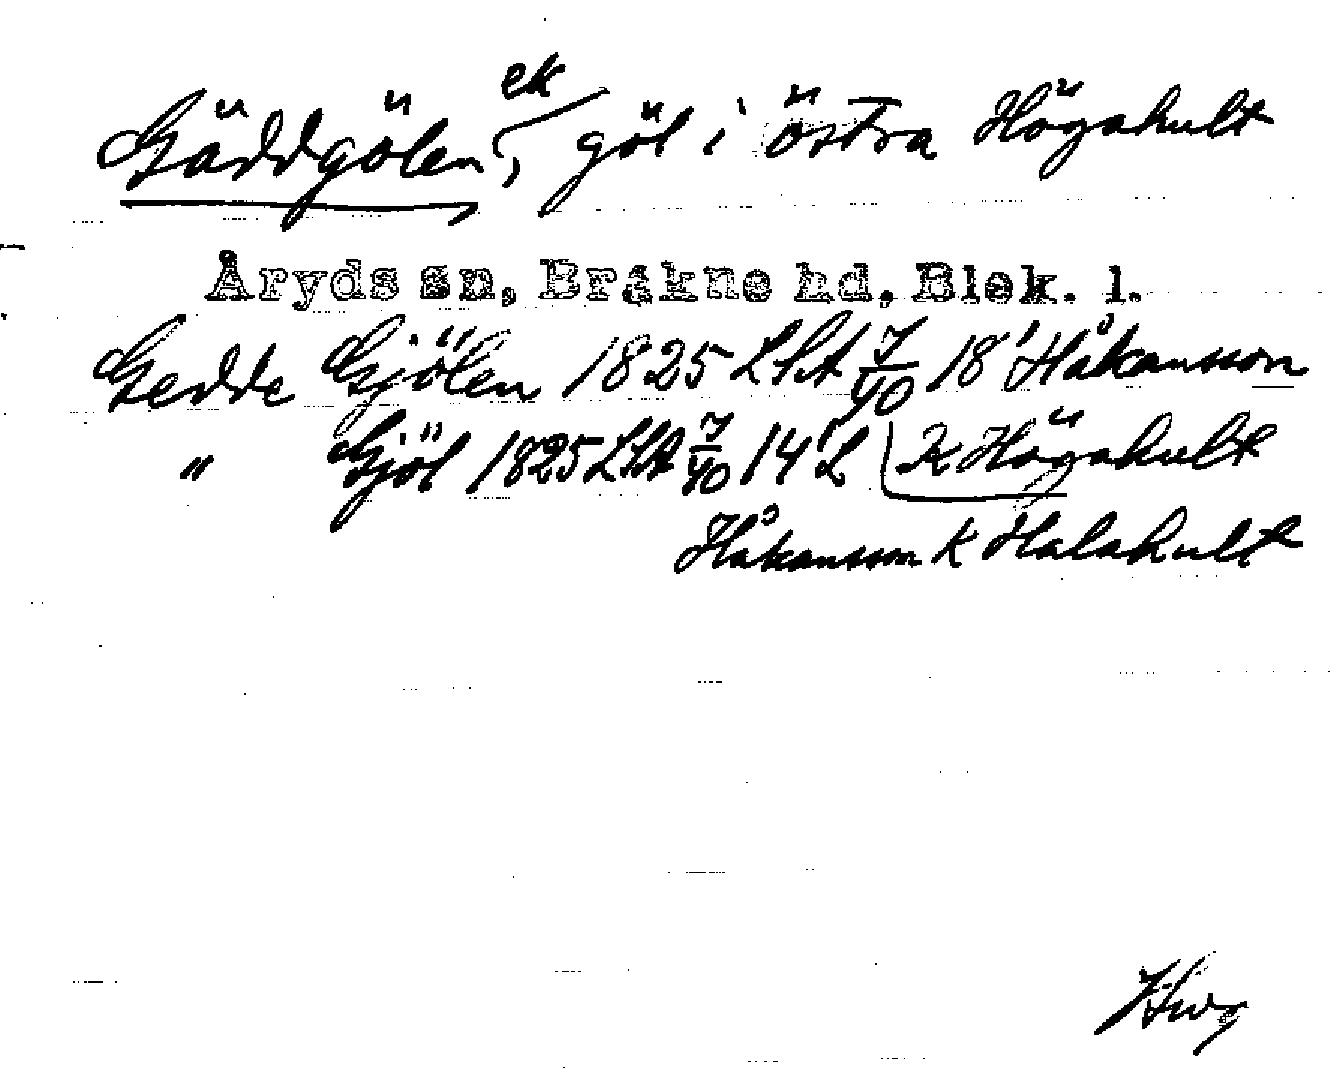 Gäddgölen, ek göl i östra Högakult
Åryds sn, Bräkne hd, Blek. l.
Gedde Gjölen 1825 LSA 7/40 18' Håkansson
" Gjöl 1825 LSA 7/40 14' L K Högakult
Håkansson K Halakult